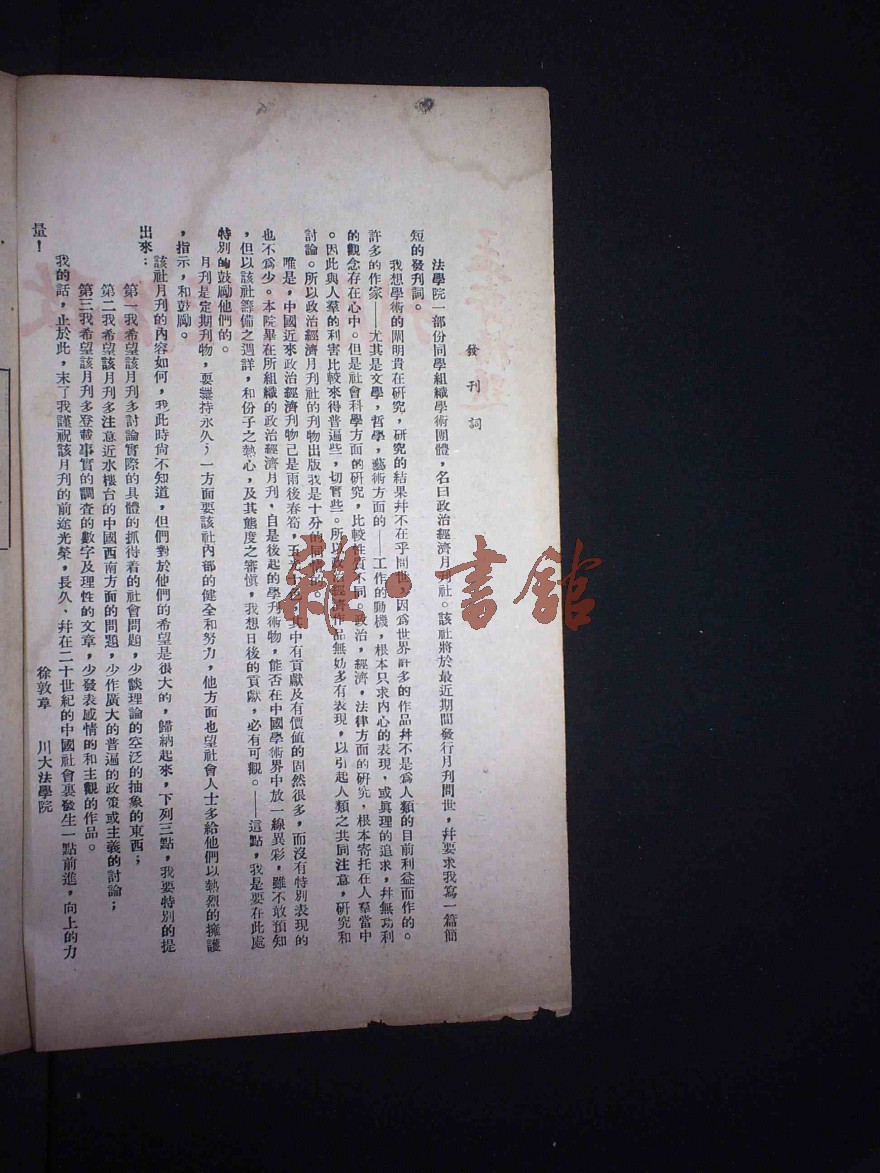 發刊詞
法學院一部份同學組織學術團體，名曰政治經濟月刊社。該社將於最近期間發行月刊問世，幷要求我寫一篇簡
短的發刊詞。
我想學術的闡明貴在研究，研究的結果幷不在乎問世，因爲世界許多的作品幷不是爲人類的目前利益而作的。
許多的作家——尤其是文學，哲學，藝術方面的——工作的動機，根本只求內心的表現，或眞理的追求，幷無功利
的觀念存在心中。但是社會科學方面的研究，比較性質不同。政治，經濟，法律方面的研究，根本寄托在人羣當中
。因此與人羣的利害比較來得普遍些，切實些。所以政治經濟作品無妨多有表現，以引起人類之共同注意，研究和
討論。所以政治經濟月刊社的刊物出版我是十分的同情的。
唯是，中國近來政治經濟刊物己是雨後春筍，五光十色，其中有貢獻及有價値的固然很多，而沒有特別表現的
也不爲少。本院畢在所組織的政治經濟月刊，自是後起的學刊術物，能否在中國學術界中放一線異彩，雖不敢預知
，但以該社籌備之週詳，和份子之熱心，及其態度之審愼，我想日後的貢獻，必有可觀。——這點，我是要在此處
特別的鼓勵他們的。
月刊是定期刊物，要繼持永久，一方面要該社內部的健全和努力，他方面也望社會人士多給他們以熱烈的擁護
，指示，和鼓勵。
該社月刊的內容如何，我此時尙不知道，但們對於他們的希望是很大的，歸納起來，下列三點，我要特別的提
出來：
第一我希望該月刊多討論實際的具體的抓待着的社會問題，少談理論的空泛的抽象的東西；
第二我希望該月刊多注意近水樓台的中國西南方面的問題，少作廣大的普遍的政策或主義的討論；
第三我希望該月刊多登載事實的調查的數字及理性的文章，少發表感情的和主觀的作品。
我的話，止於此，末了我謹祝該月刊的前途光榮，長久，幷在二十世紀的中國社會裏發生一點前進，向上的力
量！
徐敦章　川大法學院
雜·書館